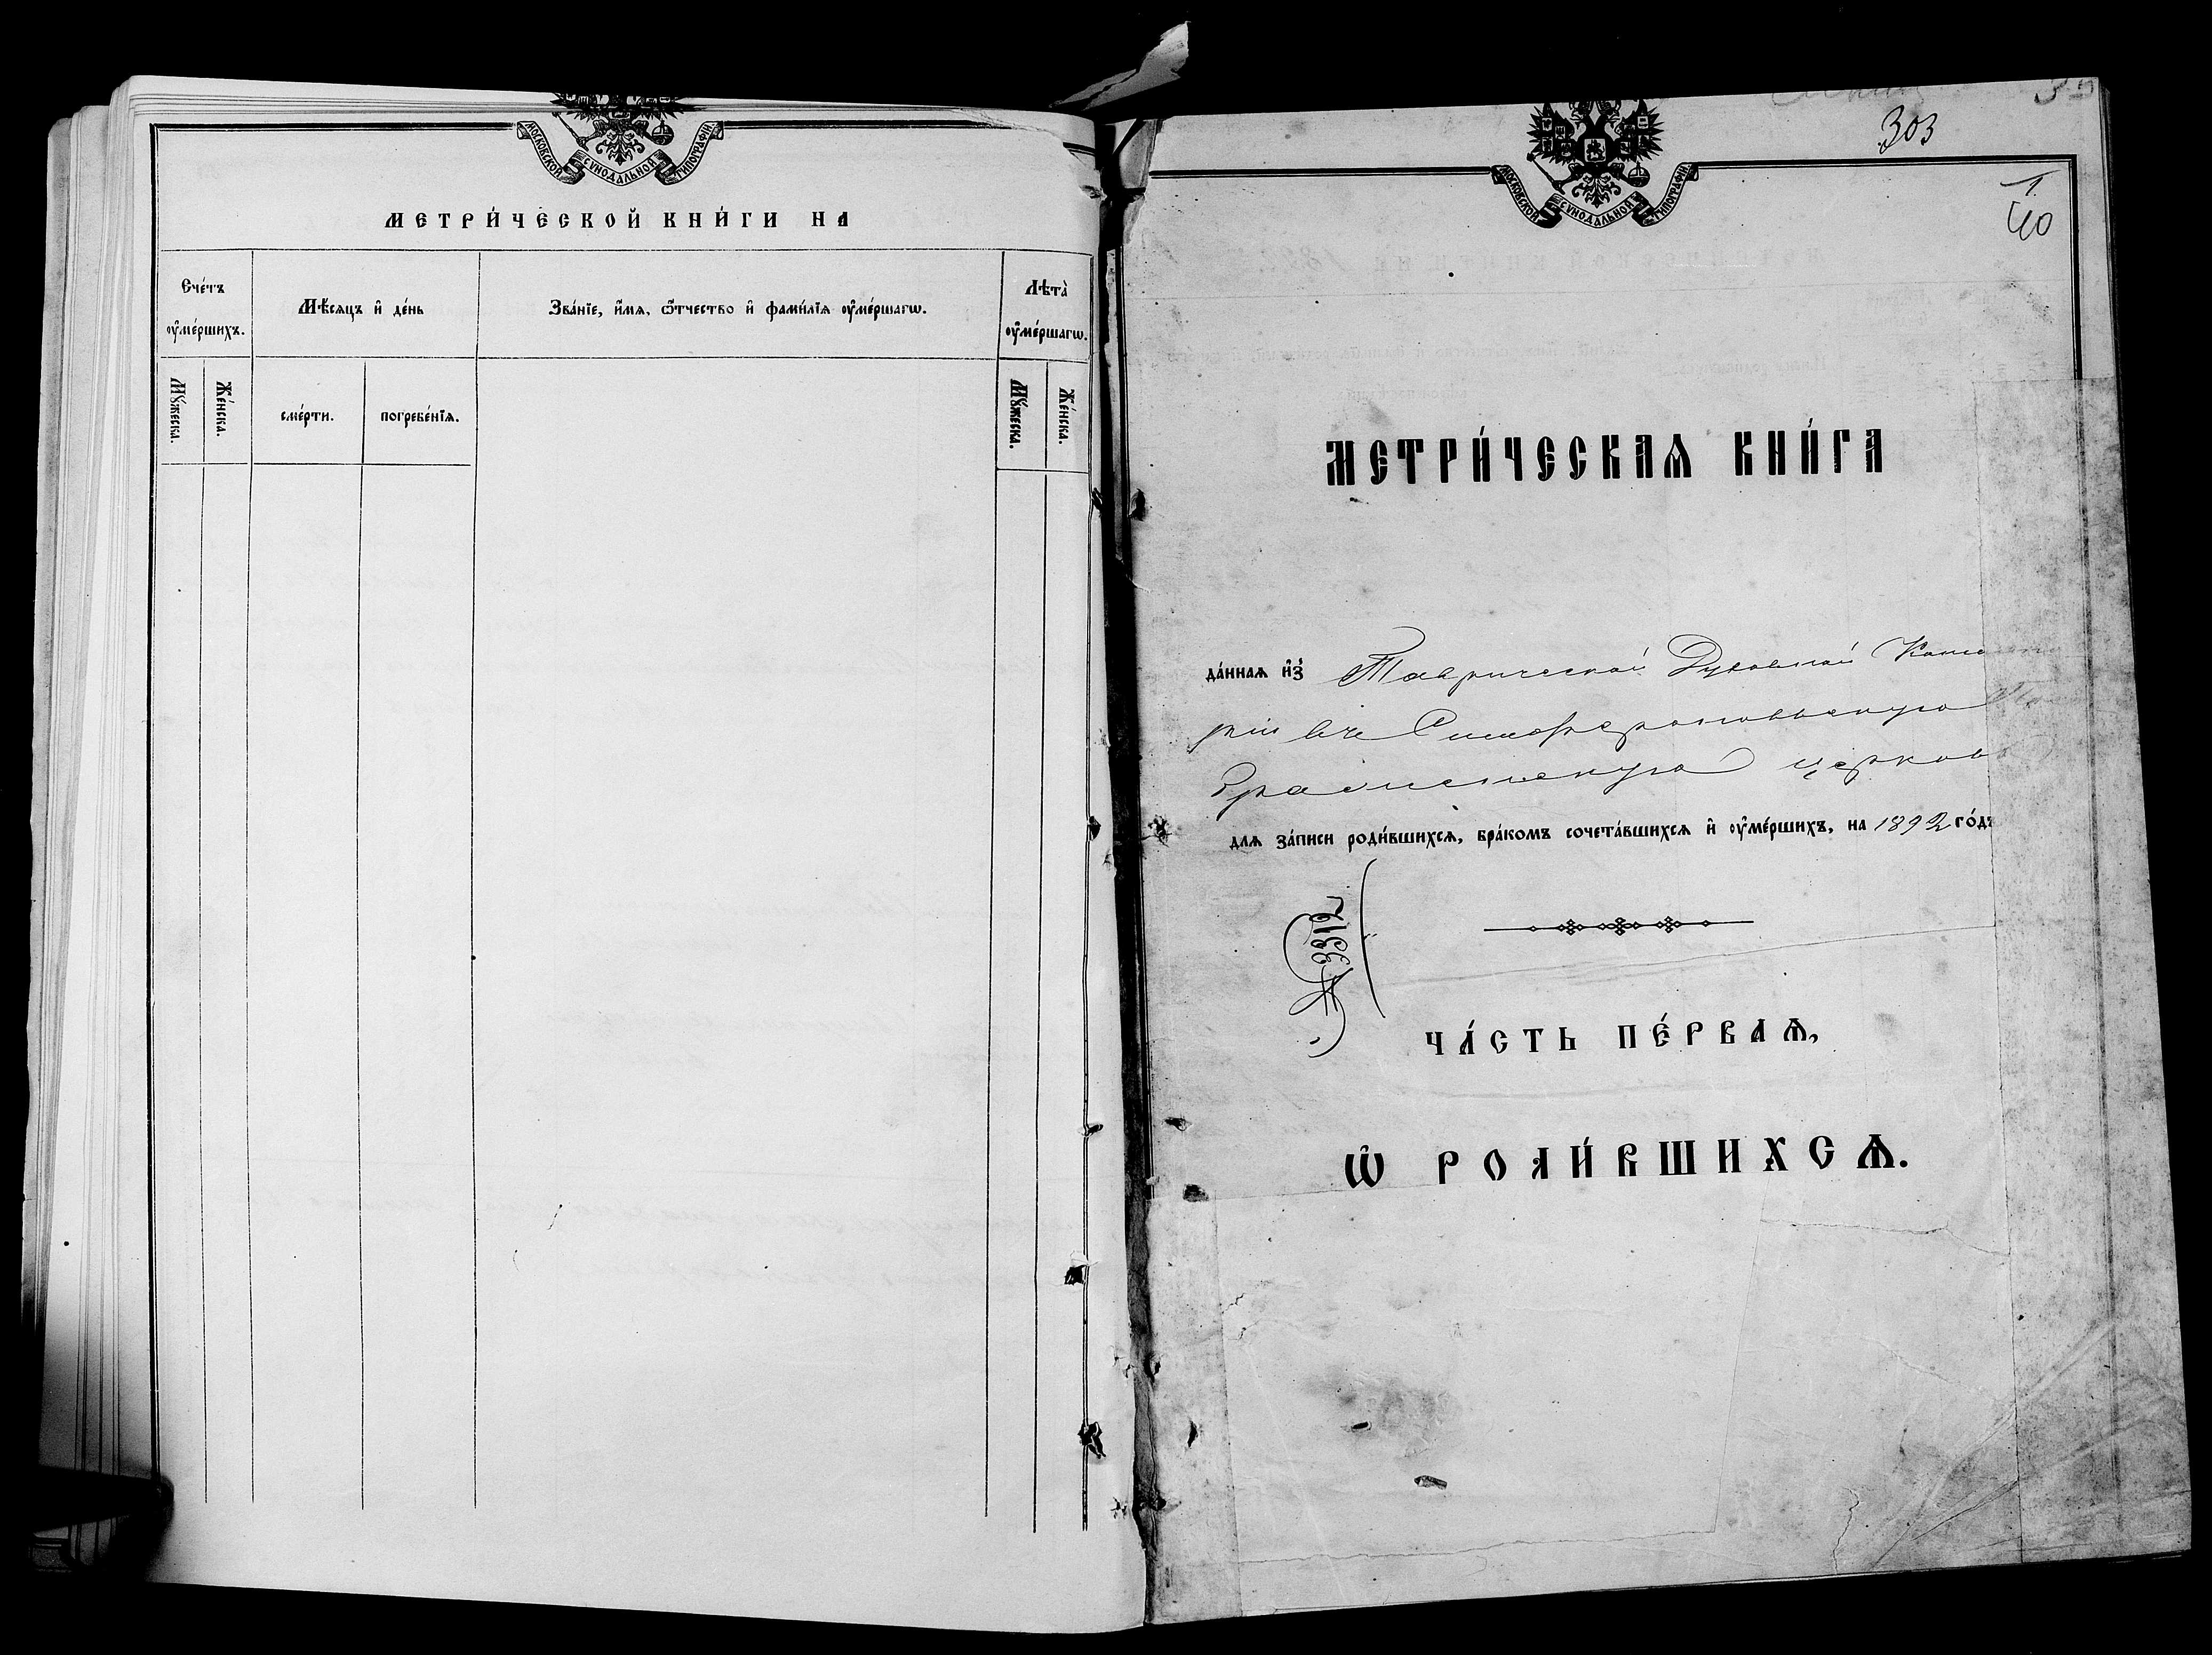 МОСКОВСКОЙ СѴНОДАЛЬНОЙ ТИПОГРАФІИ.
МЕТРИ́ЧЕСКОЙ КНИ́ГИ НА
Сче́тъ оу҆ме́ршихъ.
Мѣ́сяцъ и҆ де́нь
Зва́нїе, и҆́мѧ, ѿ́чество и҆ фами́лїѧ оу҆ме́ршагѡ.
Лѣта̀ оу҆ме́ршагѡ.
Мꙋ́жеска.
Же́нска.
сме́рти.
погребе́нїѧ.
Мꙋ́жеска.
Же́нска.
МОСКОВСКОЙ СѴНОДАЛЬНОЙ ТИПОГРАФІИ.
303
1.
40
МЕТРИ́ЧЕСКАѦ КНИ́ГА
да́ннаѧ и҆з̾ Таврической Духовной Консисто
ріи въ Симферопольскую
церковь
длѧ за́писи роди́вшихсѧ, бра́комъ сочета́вшихсѧ и҆ оу҆ме́ршихъ, на 1892 го́дъ
ЧА́СТЬ ПЕ́РВАѦ,
Ѡ҆ РОДИ́ВШИХСѦ.